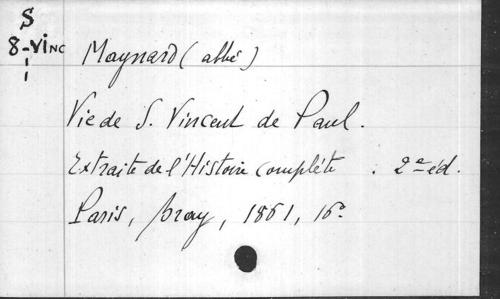 S
8-VINC
1
Maynard (abbé)
Vie de S. Vincent de Paul.
Extraite de l'Histoire complète. 2e éd.
Paris, Bray, 1861, 16°